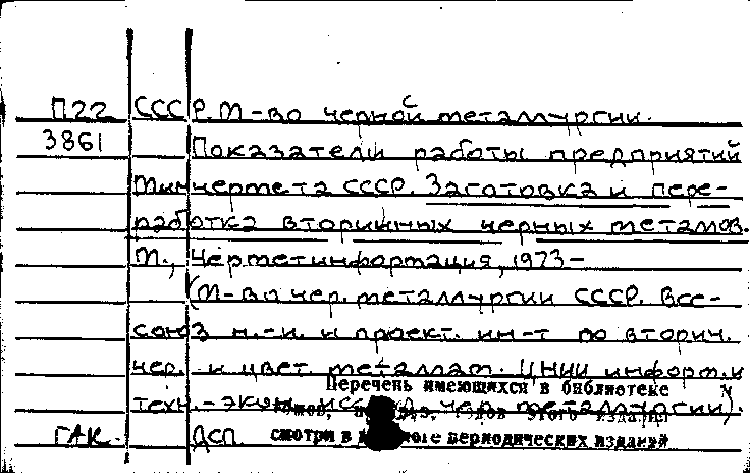 П22 СССР. М-во черной металлургии.
3861 Показатели работы предприятий
Минчермета СССР. Заготовка и пере-
работка вторичных черных металлов.
М., Черметинформация, 1973-
(М-во чер. металлургии СССР. Все-
союз н.-и. и проект. ин-т по вторич.
чер. и цвет. металлам. ЦНИИ информ. и
Перечень имеющихся в библиотеке
техн.-экон. исслед. чер. металлургии).
этого издания
ГАК. ДСП. смотри в периодических изданий